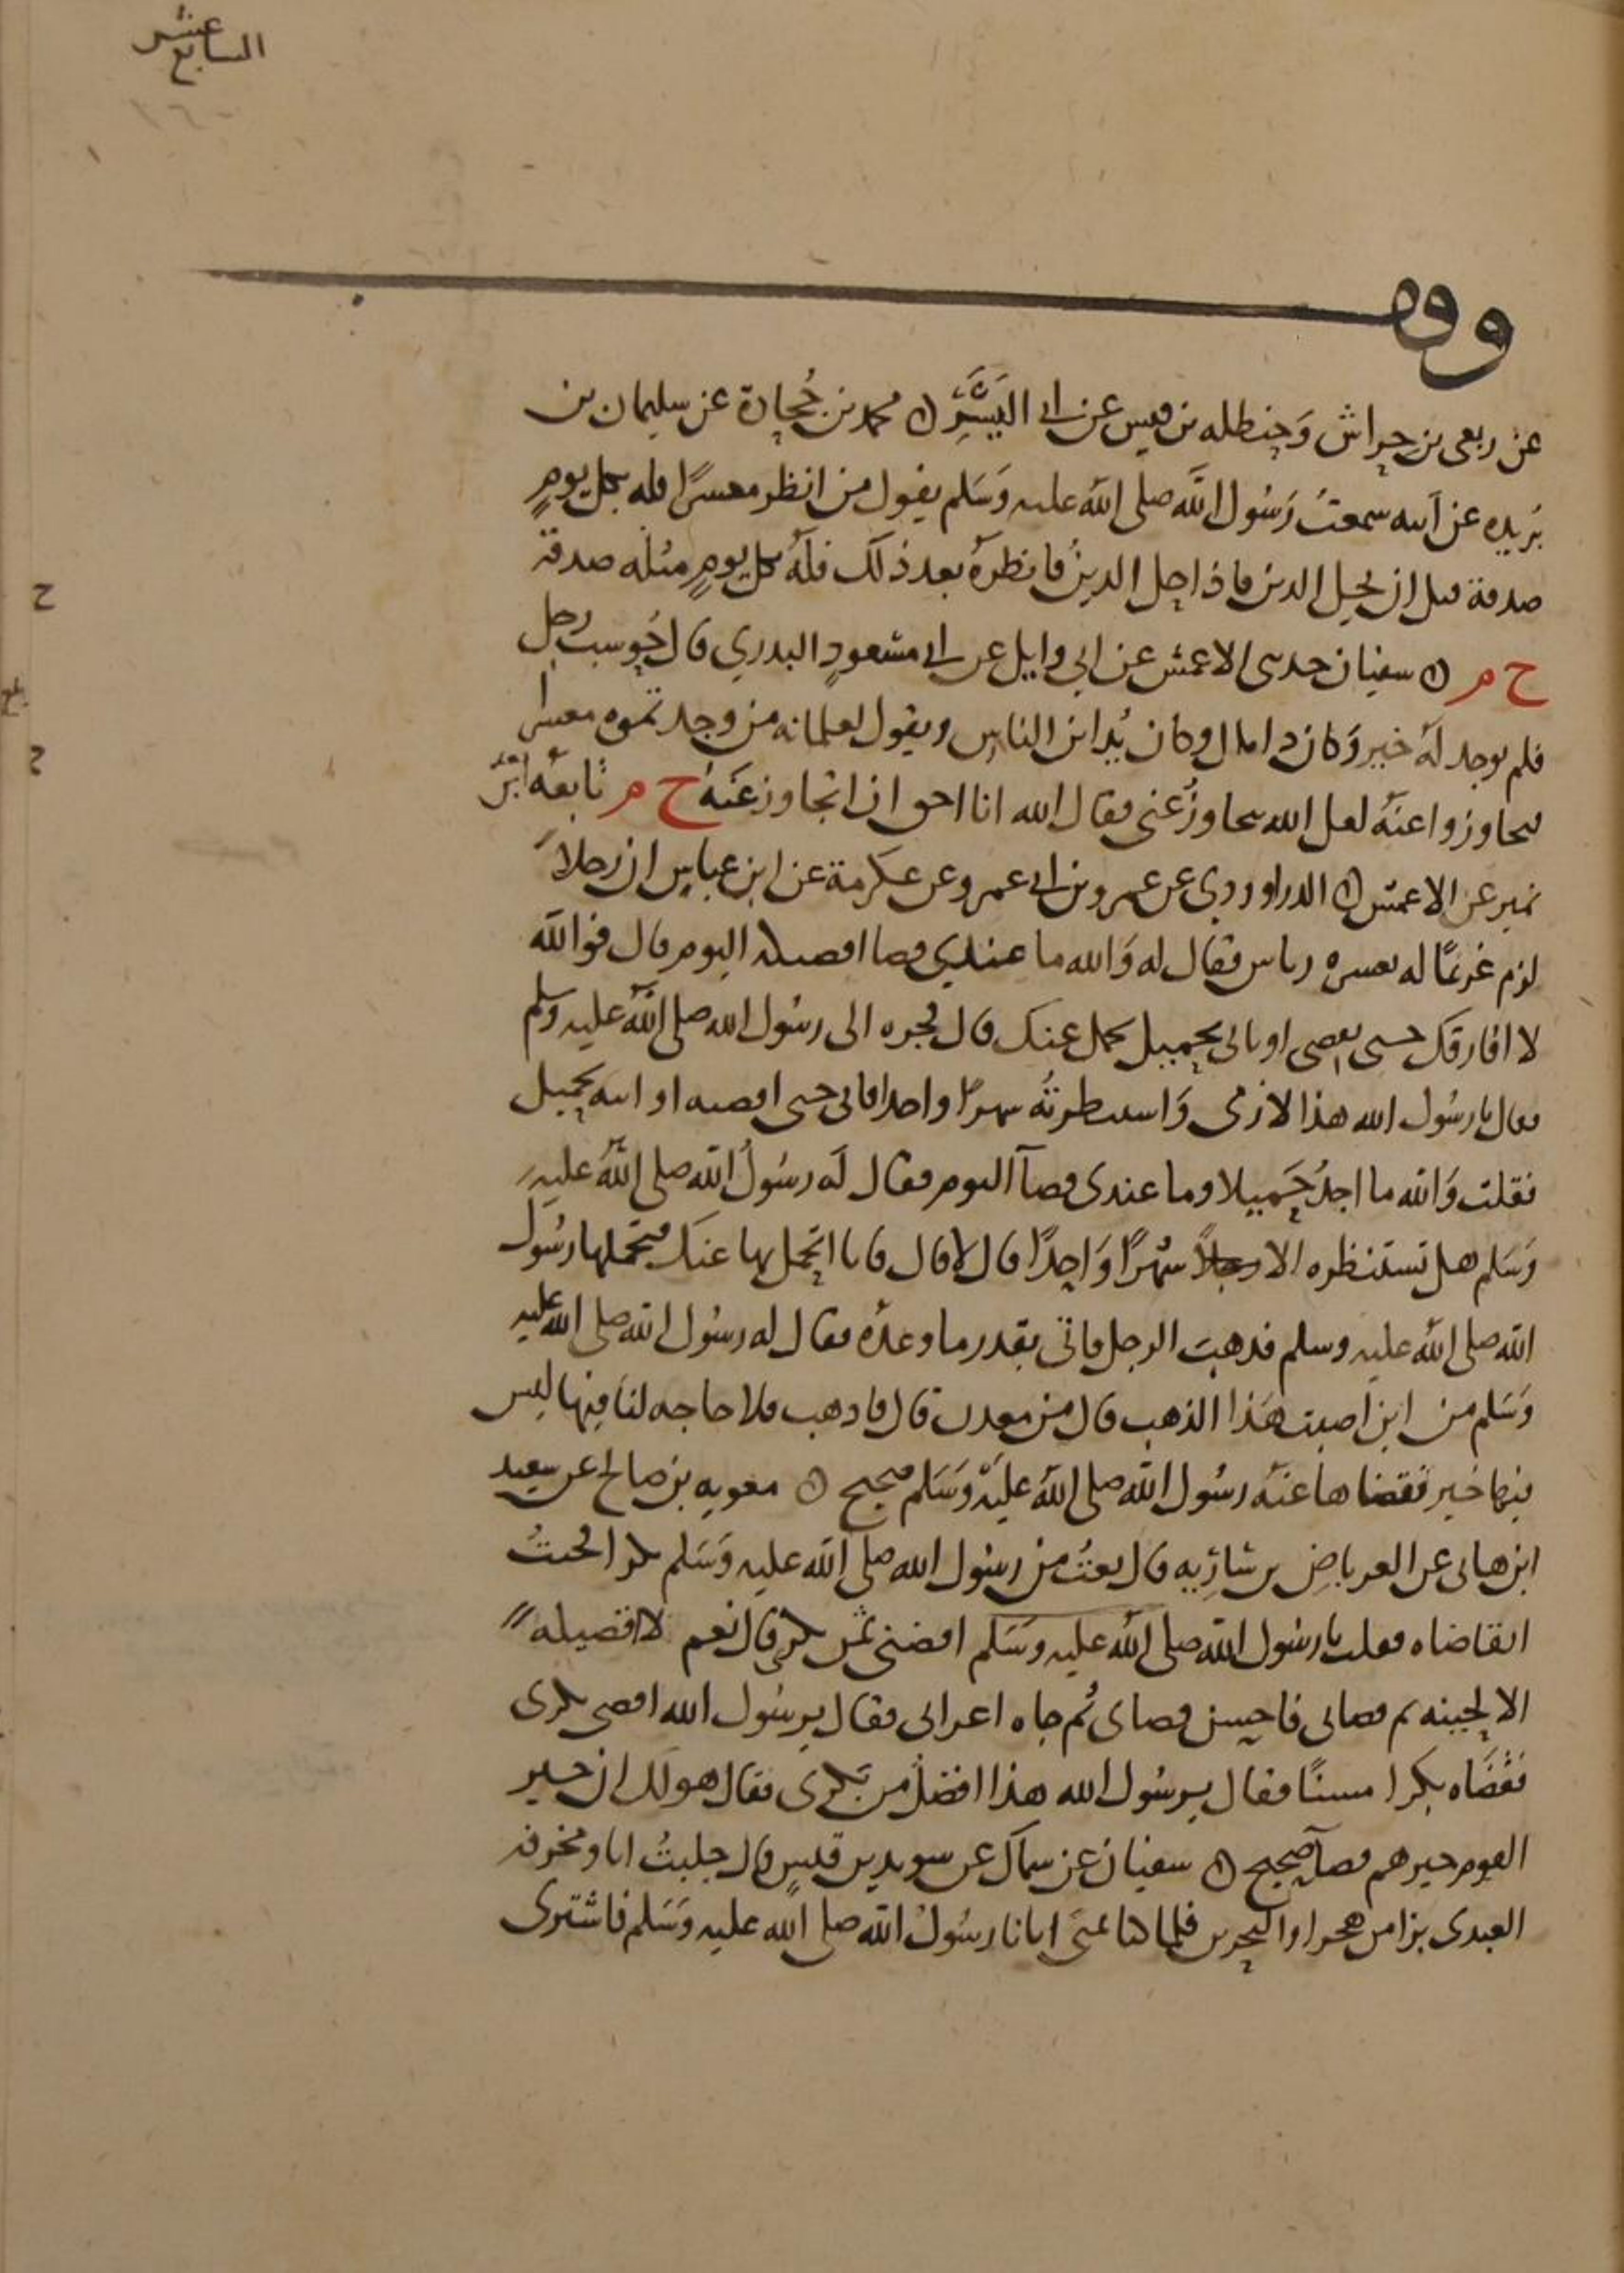 السابع عشر
عن ربعي بن حراش وحنظله بن قيس عن ابي اليَسَر ۞ محمد بن جُحادة عن سليمان بن
بُريده عن ابيه سمعتُ رَسُول الله صلى الله عليه وَسَلم يقول من انظر معسرًا فله بكل يومٍ
صدقة قبل ان يحل الدين فاذا حل الدينُ فانظرهُ بعد ذلك فلهُ بكل يومٍ مثله صدقة
خ م ۞ سفيان حدثني الاعمش عن ابي وايل عن ابي مسعودٍ البدري قال حُوسب رجل
فلم يوجد لهُ خير وَكان ذا مال وكان يُداين الناس ويقول لغلمانه من وجدتموه معسرا
فتجاوزوا عنهُ لعل الله يتجاوزُ عني فقال الله انا احق ان اتجاوز عَنهُ خ م تابعهُ ابن
نمير عن الاعمش ۞ الدراوردي عن عمرو بن ابي عمرو عن عكرمة عن ابن عباس ان رجلاً
لزم غريمًا له بعشره دنانير فقال له وَالله ما عندي قضا اقضيكه اليوم قال فوالله
لا افارقك حتى تقضي او تاتي بحميل يحمل عنك قال فجره الى رسُول الله صلى اللهُ عليه وسلم
فقال يا رسُول الله هذا لازمني وَاستنظرتُه شهرًا واحدا فابى حتى اقضيه او اتيه بحميل
فقلت وَالله ما اجدُ حَميلا وما عندي قضآ اليوم فقال لَه رسُولُ الله صلى اللهُ عليه
وَسَلم هل تستنظره الا شهرًا وَاحِدًا قال لا قال فانا اتحمل بها عنك فتحملها رسُول
الله صلى اللهُ عليه وسلم فذهبَ الرجل فاتى بقدر ما وعدهُ فقال له رسُول الله صلى الله عليه
وَسَلم من اين اصبت هَذا الذهب قال من معدن قال فاذهب فلا حاجه لنا فيها ليس
فيها خير فقضاها عنهُ رسُول الله صلى اللهُ عليه وَسَلم صحيح ۞ معويه بن صالح عن سعيد
ابن هاني عن العرباضِ بن سَارِيه قال بعتُ من رسُول الله صلى الله عليه وَسَلم بكرا فجئتُ
اتقاضاه فقلت يا رسُول الله صلى اللهُ عليه وسَلم اقضني ثمن بكري قال نعم لا اقضيكه
الا لجينه ثم قضاني فاحسن قضاي ثُم جاه اعرابي فقال يرسُول الله اقضي بكرى
فقضَاه بكرا مسنًا فقال يرسُول الله هذا افضلُ من بَكرى فقال هو لك ان خير
القوم خيرهم قضآ صحيح ۞ سفيان عن سماك عن سويد بن قيسٍ قال جلبتُ انا ومخرفه
العبدى بزا من هجر او البحرين فلما كنا بمنى اتانا رسُولُ الله صلى الله عليه وَسَلم فاشترى